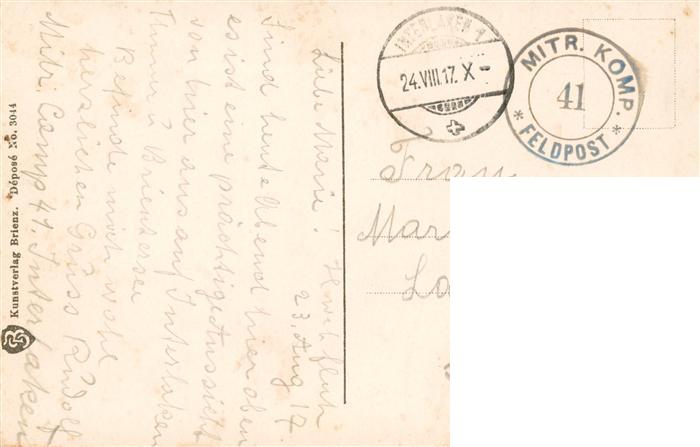 Harderfluh
23. Aug 17
Liebe Marie!
Sind heute Abend hier oben
es ist eine prächtige Aussicht
von hier aus auf Interlaken
Thuner u Brienzersee
Befinde mich wohl
herzlichen Gruss Rudolf
Mitr. Comp 41. Interlaken
Kunstverlag Brienz. Déposé No. 3044
INTERLAKEN 1
24.VIII.17. X-
MITR. KOMP.
41
* FELDPOST *
Frau
Mar
La